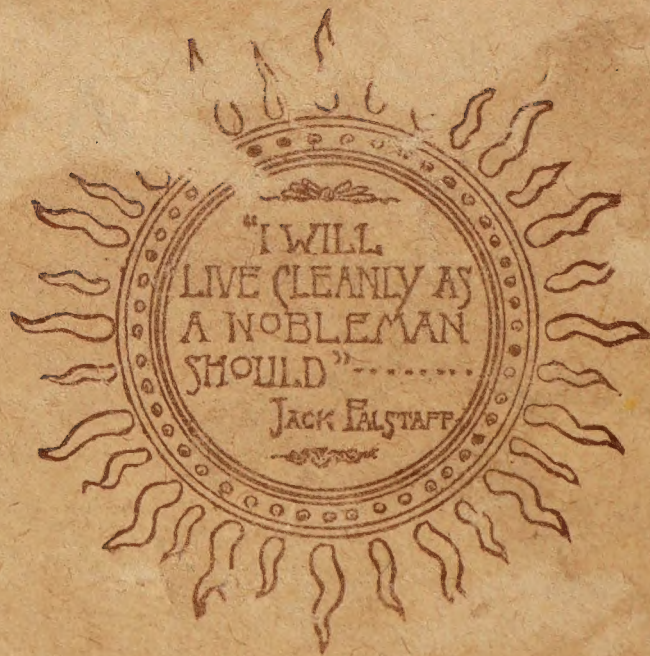 "I WILL
LIVE CLEANLY AS
A NOBLEMAN
SHOULD"--------
JACK FALSTAFF